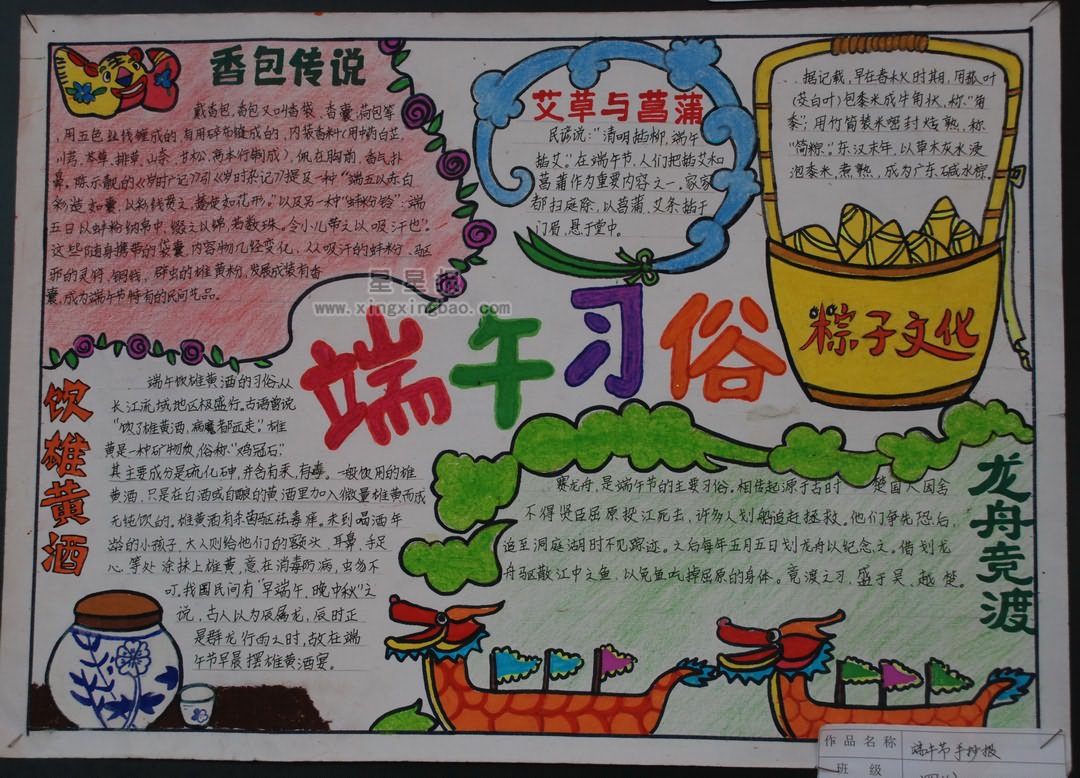 香包传说
戴香包,香包又叫香袋、香囊、荷包等,
用五色丝线缠成的,有用碎布缝成的,内装香料(用中药白芷、
川芎、芩草、排草、山奈、甘松、高本行制成),佩在胸前,香气扑
鼻。陈示靓的《岁时广记》引《岁时杂记》提及一种“端五以赤白
彩造如囊,以彩线贯之,搐使如花形。”以及另一种“蚌粉铃”:端
五日以蚌粉纳帛中,缀之以绵,若数珠。令小儿带之以吸汗也”。
这些随身携带的袋囊,内容物几经变化,从吸汗的蚌粉、驱
邪的灵符、铜钱,群虫的雄黄粉,发展成装有香
囊,成为端午节特有的民间艺品。
艾草与菖蒲
民谚说:“清明插柳,端午
插艾”。在端午节,人们把插艾和
菖蒲作为重要内容之一。家家
都扫庭除,以菖蒲、艾条插于
门眉,悬于堂中。
据记载,早在春秋时期,用菰叶
(茭白叶)包黍米成牛角状,称“角
黍”;用竹筒装米密封烤熟,称
“筒粽”。东汉末年,以草木灰水浸
泡黍米,煮熟,成为广东碱水粽。
粽子文化
星星报
www.xingxingbao.com
端午习俗
饮雄黄酒
端午饮雄黄酒的习俗,从
长江流域地区极盛行。古语曾说
“饮了雄黄酒,病魔都远走。”雄
黄是一种矿物质,俗称“鸡冠石”,
其主要成分是硫化砷,并含有汞,有毒。一般饮用的雄
黄酒,只是在白酒或自酿的黄酒里加入微量雄黄而成,
无纯饮的。雄黄酒有杀菌驱祛毒痒。未到喝酒年
龄的小孩子,大人则给他们的额头、耳鼻、手足
心等处涂抹上雄黄,意在消毒防病,虫豸不
叮。我国民间有“早端午,晚中秋”之
说,古人以为辰属龙,辰时正
是群龙行雨之时,故在端
午节早晨摆雄黄酒宴。
龙舟竞渡
赛龙舟,是端午节的主要习俗。相传起源于古时 楚国人因舍
不得贤臣屈原投江死去,许多人划船追赶拯救。他们争先恐后,
追至洞庭湖时不见踪迹。之后每年五月五日划龙舟以纪念之。借划龙
舟驱散江中之鱼,以免鱼吃掉屈原的身体。竞渡之习,盛于吴、越、楚。
作品名称 端午节手抄报
班级